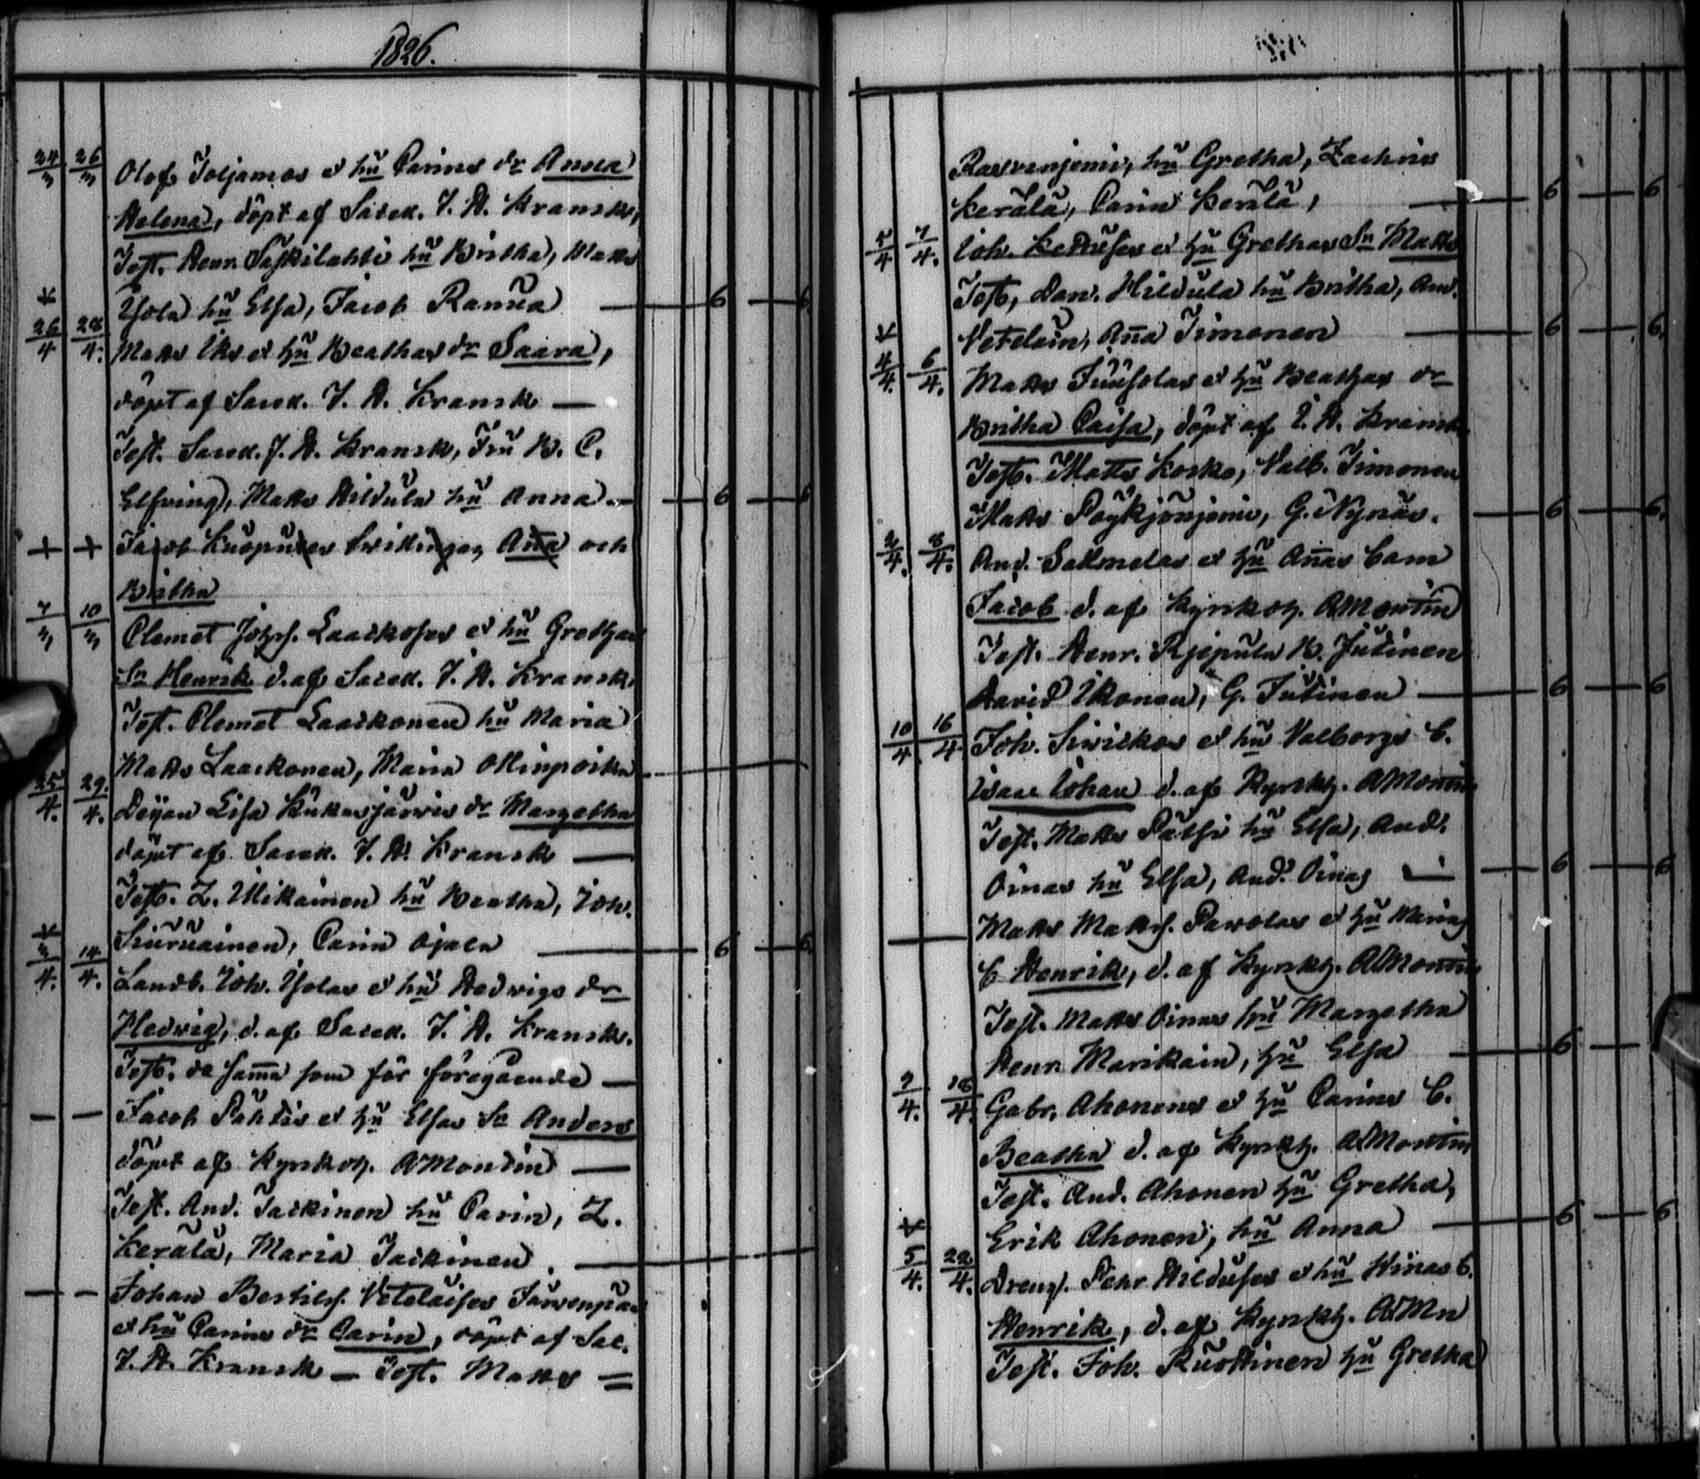 1826.
24/3 26/3 Olof Toljamos o hŭ Carins dr Anna
Helena, döpt af Sacell. J. A. Kransk,
Test. Henr. Saskilahti hŭ Britha, Matts
Ylola hŭ Elsa, Jacob Rannŭa — 6 — 6
26/4 28/4. Matts Iks o hŭ Beathas dr Saara,
döpt af Sacell. J. A. Kransk —
Test. Sacell. J. A. Kransk, Frŭ B. C.
Elfving, Matts Hildŭla hŭ Anna. — 6 — 6
+ + Jacob och
Britha
7/3 10/3 Clemet Johss. Laackoses o hŭ Grethas
Sn Henrik d. af Sacell. J. A. Kransk,
Test. Clemet Laackonen hŭ Maria
Matts Laackonen, Maria Ollinpoika
25/4. 29/4. Deijan Lisa Kŭkasjärvis dr Margetha
döpt af Sacell. J. A. Kransk —
Test. Z. Mikainen hŭ Beatha, Joh.
Siŭrŭainen, Carin Ojala — 6 — 6
3/4. 14/4. Landb. Joh. Ylolas o hŭ Hedvigs dr
Hedvig, d. af Sacell. J. A. Kransk.
Test. de samma som för föregående —
— — Jacob Pähtis o hŭ Elsas Sn Anders
döpt af Kyrkoh. A Montin —
Test. And. Jackinen hŭ Carin, Z.
Kerälä, Maria Jackinen. —
— — Johan Bertilss. Vetelŭises
o hŭ Carins dr Carin, döpt af Sac.
J. A. Kransk — Test. Matts =
hŭ Gretha, Zachris
Kerälä, Carin Kerälä, — 6 — 6
5/4 7/4. Joh. o hŭ Grethas Sn Matts
Test, Dan. Hildŭla hŭ Britha, And.
Vetelŭin, Anna Timonen — 6 — 6
4/4. 6/4. Matts o hŭ Beathas dr
Britha Caisa, döpt af J. A. Kransk
Test. Matts Kosko, Valb. Timonen
Matts Pöykjönjemi, G. Nynäs. — 6 — 6
2/4. 8/4. And. Salmelas o hŭ Annas barn
Jacob d. af Kyrkoh. A Montin
Test. Henr. B. Jŭtinen
David Ikonen, G. Jŭtinen — 6 — 6
10/4 16/4 Joh. o hŭ Valborgs b.
Isac Johan d. af Kyrkh. A Montin
Test. Matts Päthsi hŭ Elsa, And.
Oinas hŭ Elsa, And. Oinas — 6 — 6
Matts Mattss. Pavolas o hŭ Marias
b Henrik, d. af Kyrkh. A Montin
Test. Matts Oinas hŭ Margetha
Henr. Marikain, hŭ Elsa — 6 —
9/4. 18/4. Gabr. Ahonens o hŭ Carins b.
Beatha d. af Kyrkh. A Montin
Test. And. Ahonen hŭ Gretha,
Erik Ahonen, hŭ Anna — 6 — 6
5/4. 22/4. Dreng. Pehr Hildŭses o hŭ b.
Henrik, d. af Kyrkh. A Mn
Test. Joh. Rŭottinen hŭ Gretha